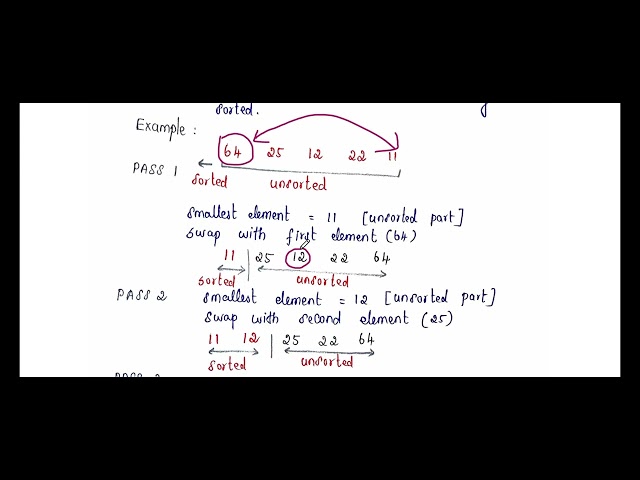 sorted.
Example :
64 25 12 22 11
PASS 1
sorted unsorted
smallest element = 11 [unsorted part]
swap with first element (64)
11 | 25 12 22 64
sorted unsorted
PASS 2 smallest element = 12 [unsorted part]
swap with second element (25)
11 12 | 25 22 64
sorted unsorted